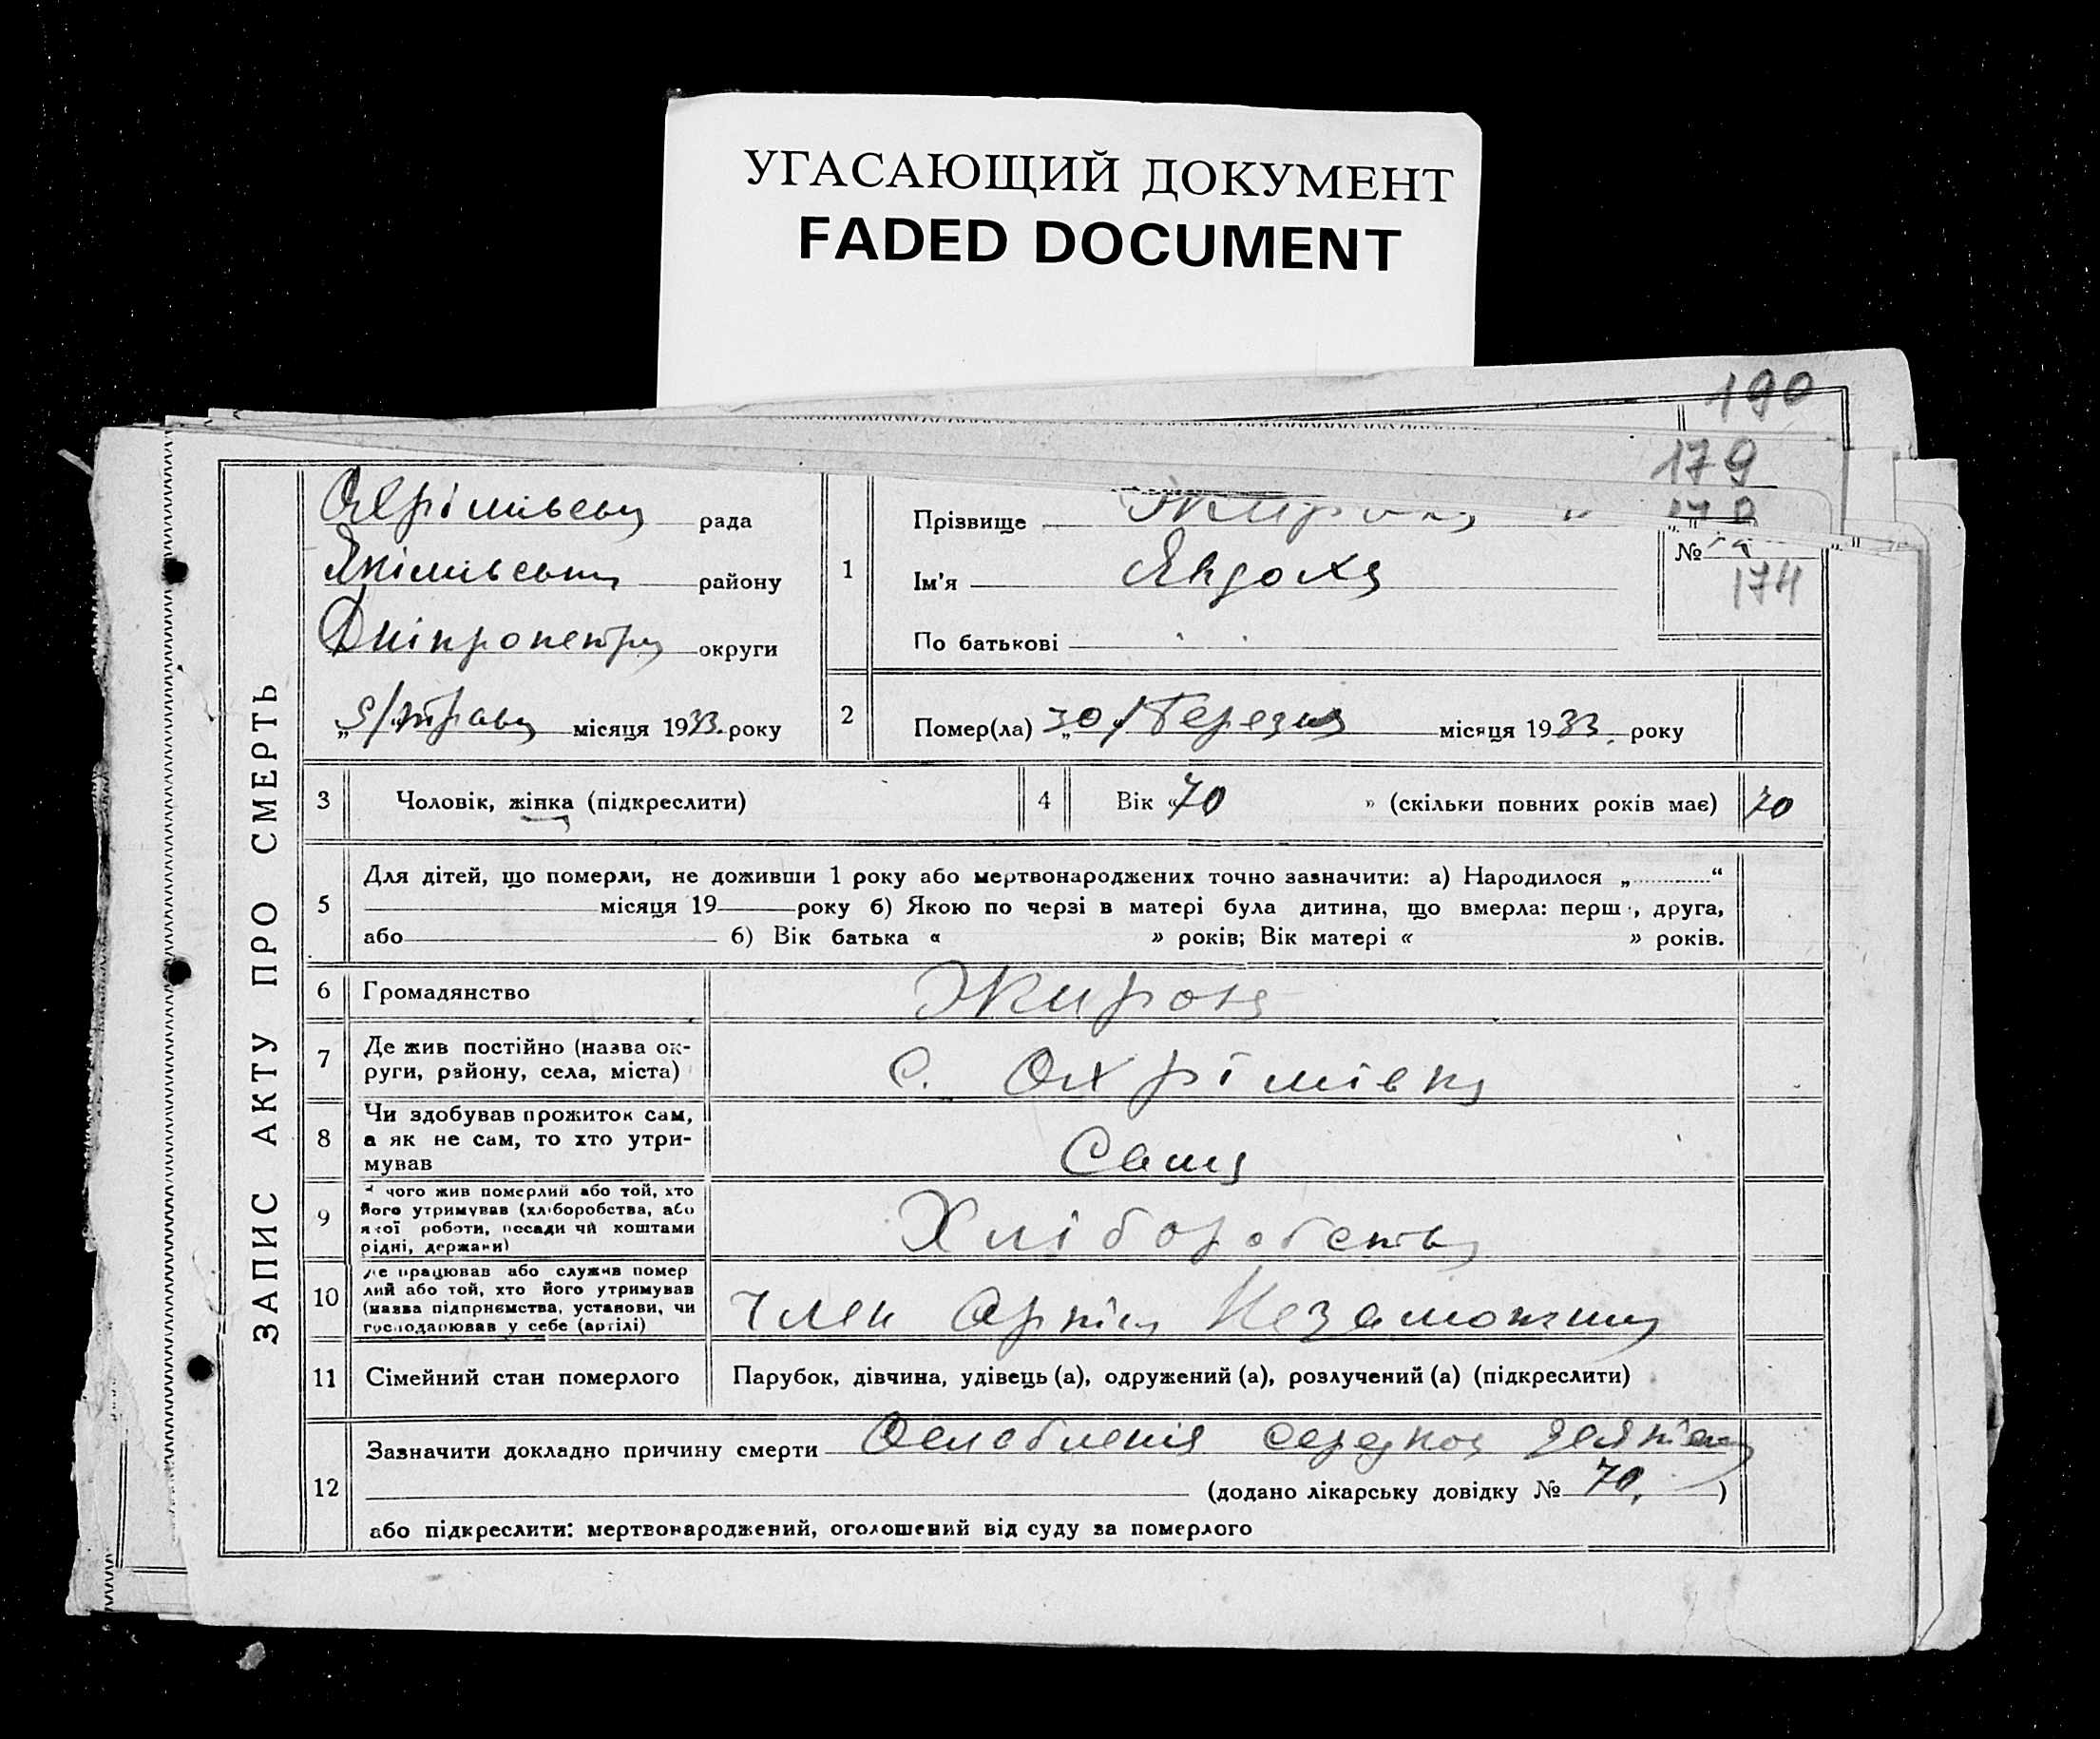 УГАСАЮЩИЙ ДОКУМЕНТ
FADED DOCUMENT
190
179
174
ЗАПИС АКТУ ПРО СМЕРТЬ
Охрімівськ рада
Якімівськ району
Дніпропетр округи
„5/травня місяця 1933. року
1
Прізвище
Ім'я Явдоха
По батькові
№
2
Помер(ла) „30/Березня місяця 1933. року
3 Чоловік, жінка (підкреслити)
4 Вік «70 » (скільки повних років має) 70
5 Для дітей, що померли, не доживши 1 року або мертвонароджених точно зазначити: а) Народилося „ “
місяця 19 року б) Якою по черзі в матері була дитина, що вмерла: перш , друга,
або б) Вік батька « » років; Вік матері « » років.
6 Громадянство
7 Де жив постійно (назва ок-
руги, району, села, міста) С. Охрімівка
8 Чи здобував прожиток сам,
а як не сам, то хто утри-
мував Сама
9 чого жив померлий або той, хто
його утримував (хліборобства, або
якої роботи, посади чи коштами
рідні, держави) Хліборобства
10 Де працював або служив помер
лий або той, хто його утримував
(назва підприємства, установи, чи
господарював у себе (артілі) Член Артілі Незаможник
11 Сімейний стан померлого Парубок, дівчина, удівець (а), одружений (а), розлучений (а) (підкреслити)
12 Зазначити докладно причину смерти Ослаблення
(додано лікарську довідку № 70. )
або підкреслити: мертвонароджений, оголошений від суду за померлого